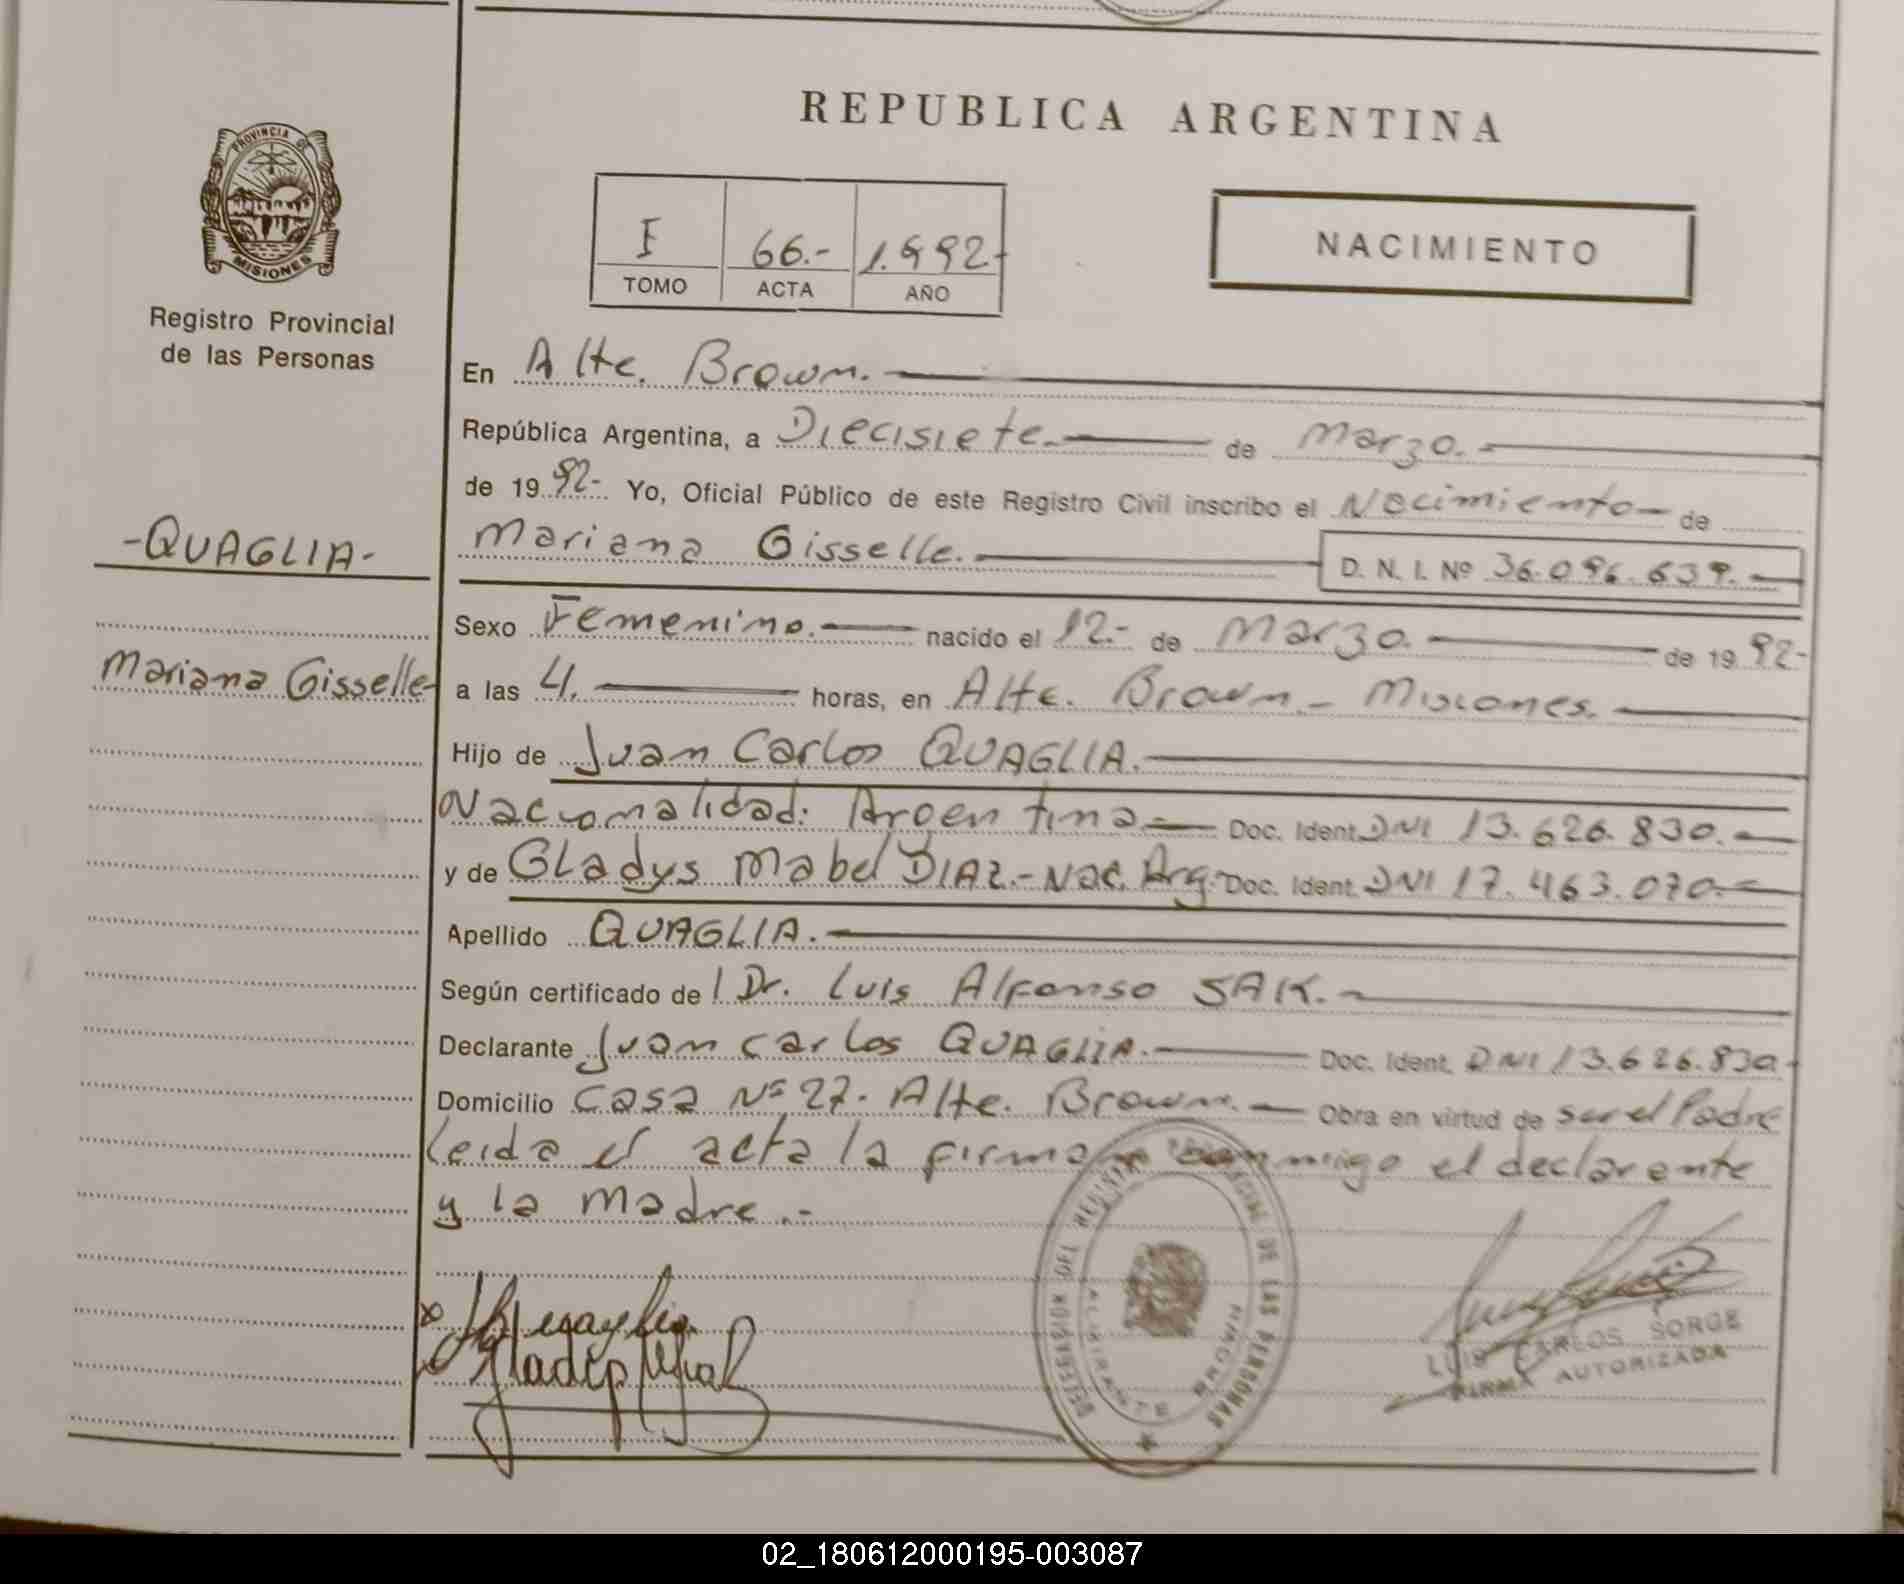 REPUBLICA ARGENTINA
PROVINCIA DE
MISIONES
Registro Provincial
de las Personas
I 66.- 1.992-
TOMO ACTA AÑO
NACIMIENTO
En Alte. Brown.
República Argentina, a Diecisiete. de Marzo.
de 19 92- Yo, Oficial Público de este Registro Civil inscribo el Nacimiento de
-QUAGLIA-
Mariana Gisselle. D. N. I. Nº 36.096.639.
Sexo Femenino. nacido el 12.- de Marzo. de 19 92-
Mariana Gisselle
a las 4. horas, en Alte. Brown.- Misiones.
Hijo de Juan Carlos QUAGLIA.
Nacionalidad: Argentina- Doc. Ident. DNI 13.626.830.
y de Gladys Mabel DIAZ.- Nac. Arg.- Doc. Ident. DNI 17.463.070.
Apellido QUAGLIA.
Según certificado del Dr. Luis Alfonso SAK.-
Declarante Juan Carlos QUAGLIA. Doc. Ident. DNI 13.626.830
Domicilio Casa Nº 27. Alte. Brown. Obra en virtud de ser el Padre
Leida el acta la firman conmigo el declarante
y la madre.-
REGISTRO PROVINCIAL DE LAS PERSONAS
ALMIRANTE BROWN
LUIS CARLOS SORGE
FIRMA AUTORIZADA
02_180612000195-003087